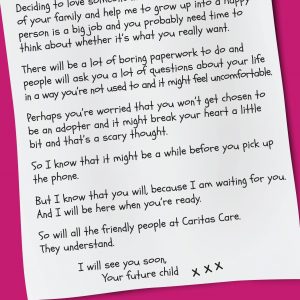 Deciding to love someone
of your family and help me to grow up into a happy
person is a big job and you probably need time to
think about whether it's what you really want.
There will be a lot of boring paperwork to do and
people will ask you a lot of questions about your life
in a way you're not used to and it might feel uncomfortable.
Perhaps you're worried that you won't get chosen to
be an adopter and it might break your heart a little
bit and that's a scary thought.
So I know that it might be a while before you pick up
the phone.
But I know that you will, because I am waiting for you.
And I will be here when you're ready.
So will all the friendly people at Caritas Care.
They understand.
I will see you soon,
Your future child x x x